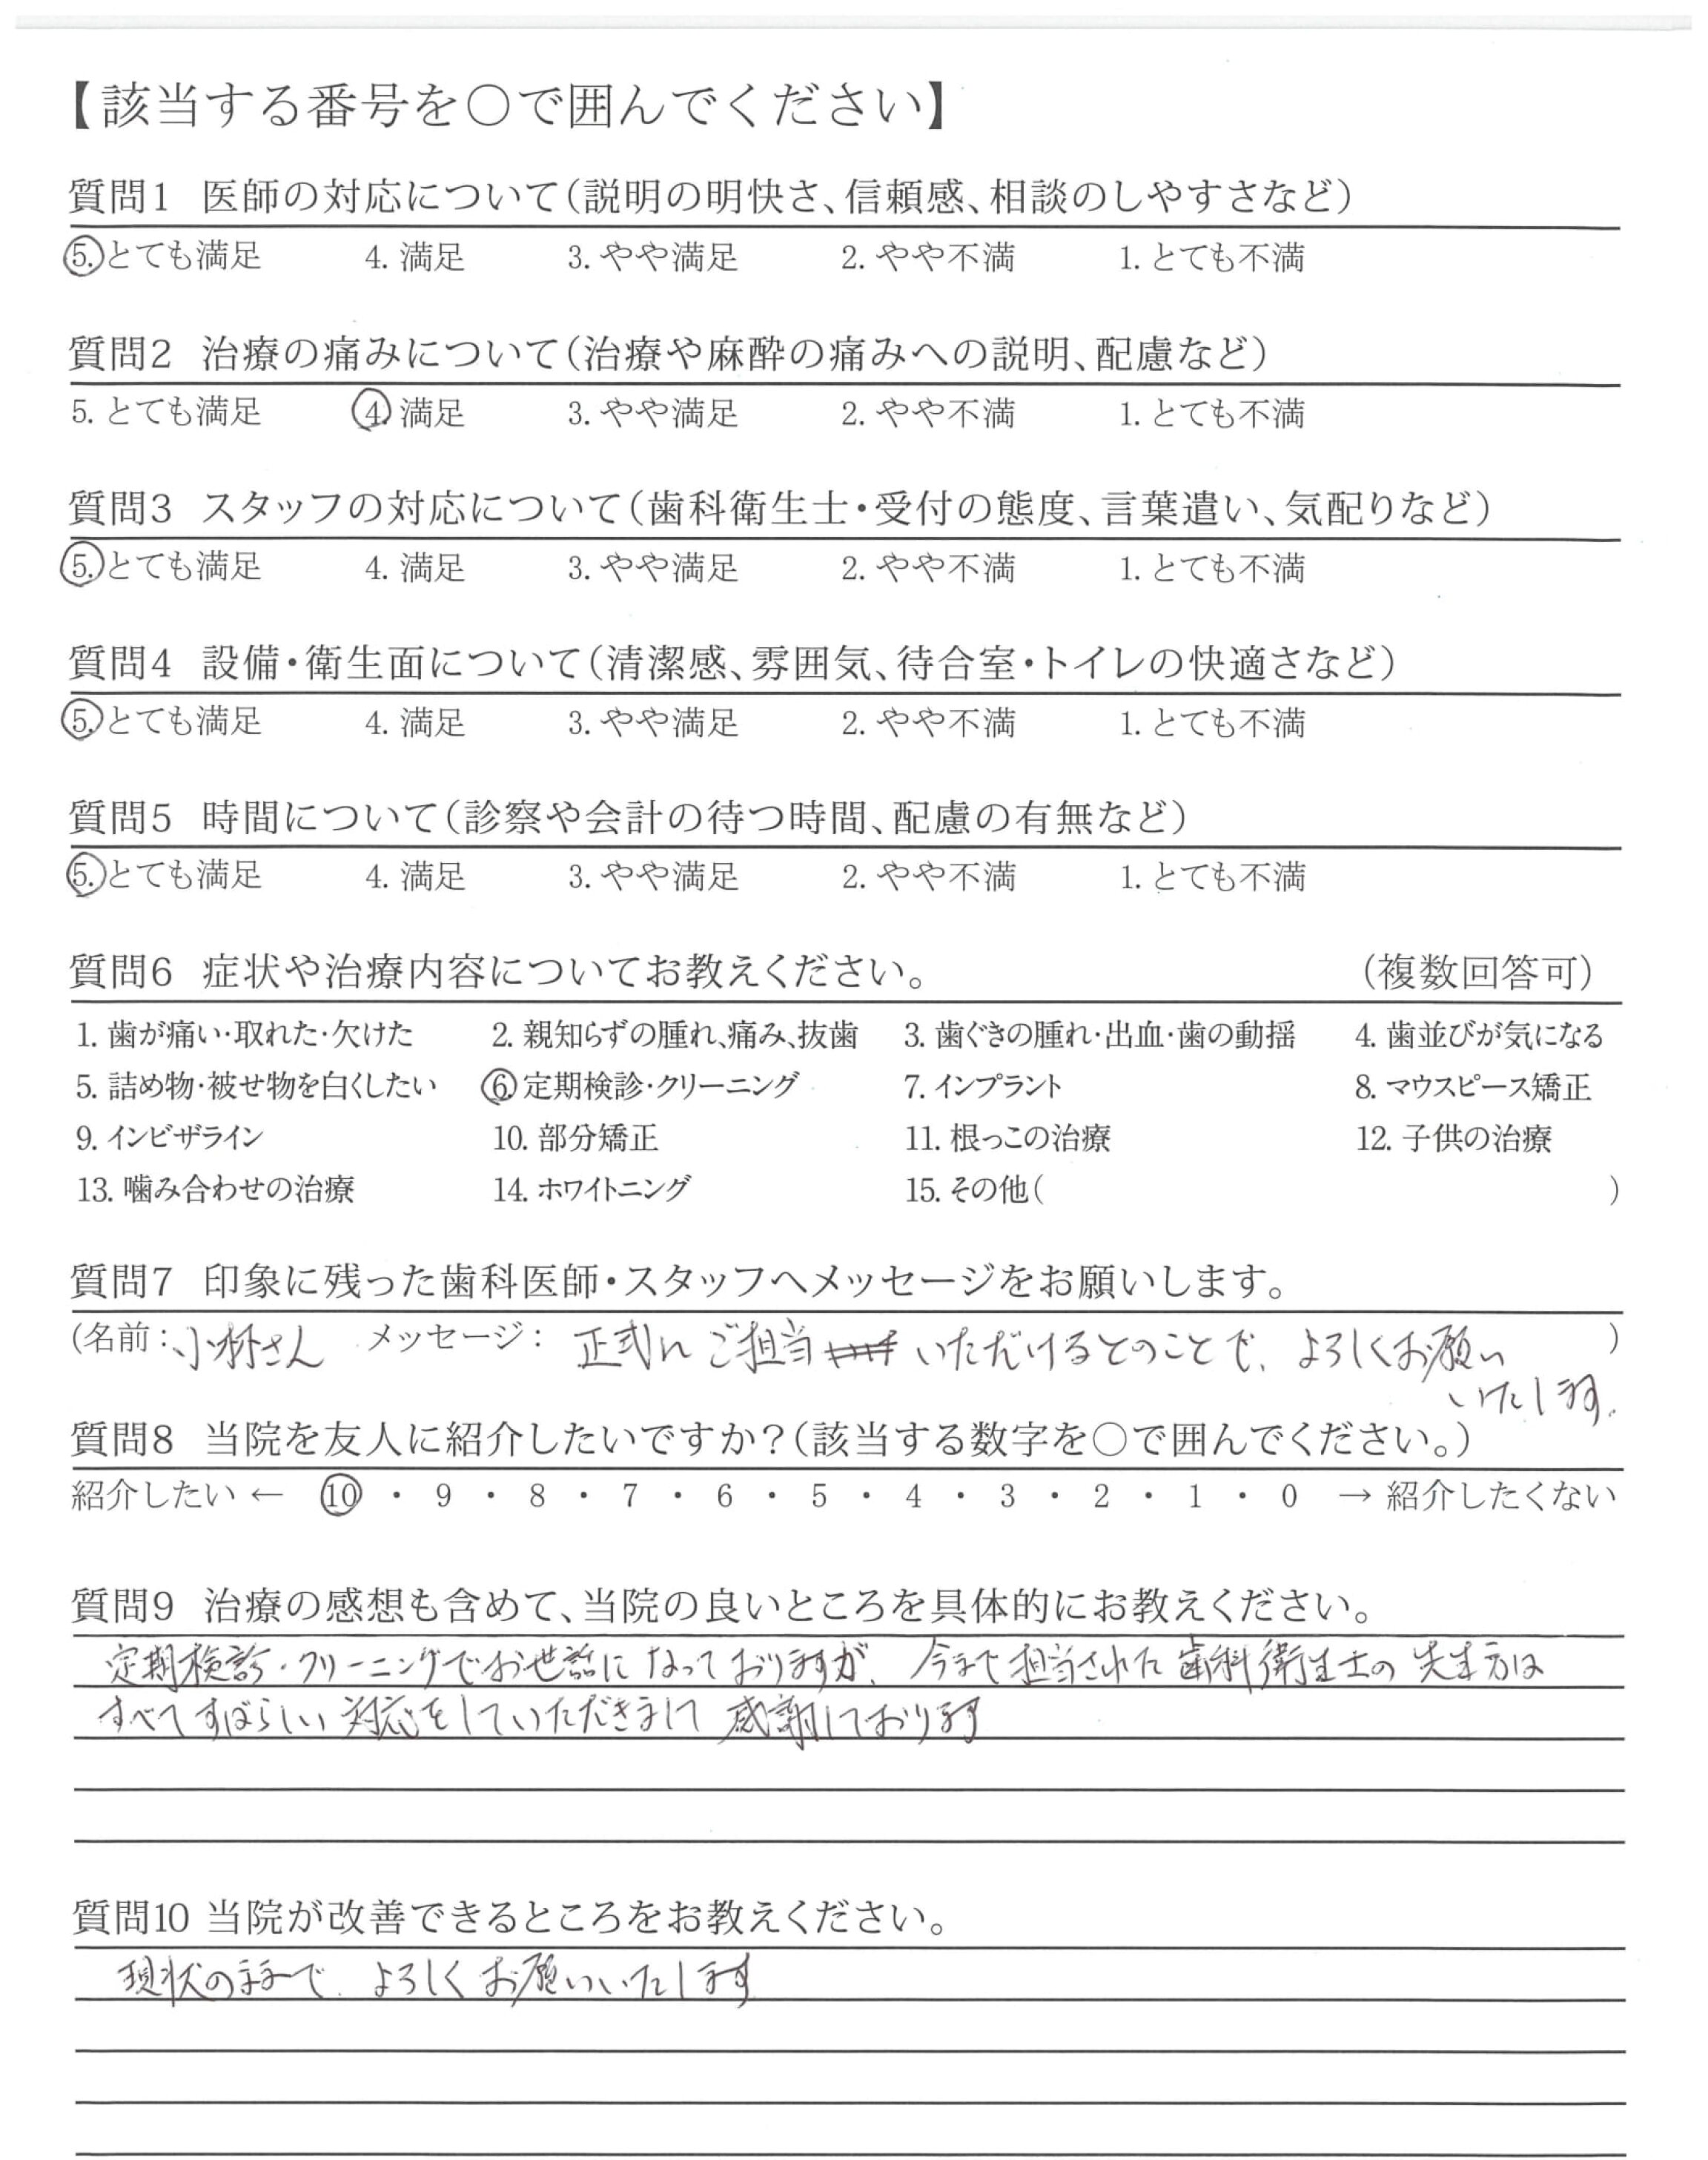 【該当する番号を○で囲んでください】
質問1 医師の対応について(説明の明快さ、信頼感、相談のしやすさなど)
5. とても満足 4. 満足 3. やや満足 2. やや不満 1. とても不満
質問2 治療の痛みについて(治療や麻酔の痛みへの説明、配慮など)
5. とても満足 4. 満足 3. やや満足 2. やや不満 1. とても不満
質問3 スタッフの対応について(歯科衛生士・受付の態度、言葉遣い、気配りなど)
5. とても満足 4. 満足 3. やや満足 2. やや不満 1. とても不満
質問4 設備・衛生面について(清潔感、雰囲気、待合室・トイレの快適さなど)
5. とても満足 4. 満足 3. やや満足 2. やや不満 1. とても不満
質問5 時間について(診察や会計の待つ時間、配慮の有無など)
5. とても満足 4. 満足 3. やや満足 2. やや不満 1. とても不満
質問6 症状や治療内容についてお教えください。 (複数回答可)
1. 歯が痛い・取れた・欠けた 2. 親知らずの腫れ、痛み、抜歯 3. 歯ぐきの腫れ・出血・歯の動揺 4. 歯並びが気になる
5. 詰め物・被せ物を白くしたい 6. 定期検診・クリーニング 7. インプラント 8. マウスピース矯正
9. インビザライン 10. 部分矯正 11. 根っこの治療 12. 子供の治療
13. 噛み合わせの治療 14. ホワイトニング 15. その他( )
質問7 印象に残った歯科医師・スタッフへメッセージをお願いします。
(名前:小林さん メッセージ: 正式にご担当いただけるとのことで、よろしくお願い )
いたします。
質問8 当院を友人に紹介したいですか?(該当する数字を○で囲んでください。)
紹介したい ← 10 ・ 9 ・ 8 ・ 7 ・ 6 ・ 5 ・ 4 ・ 3 ・ 2 ・ 1 ・ 0 → 紹介したくない
質問9 治療の感想も含めて、当院の良いところを具体的にお教えください。
定期検診・クリーニングでお世話になっておりますが、今まで担当された歯科衛生士の先生方は
すべてすばらしい対応をしていただきまして感謝しております
質問10 当院が改善できるところをお教えください。
現状のままで、よろしくお願いいたします